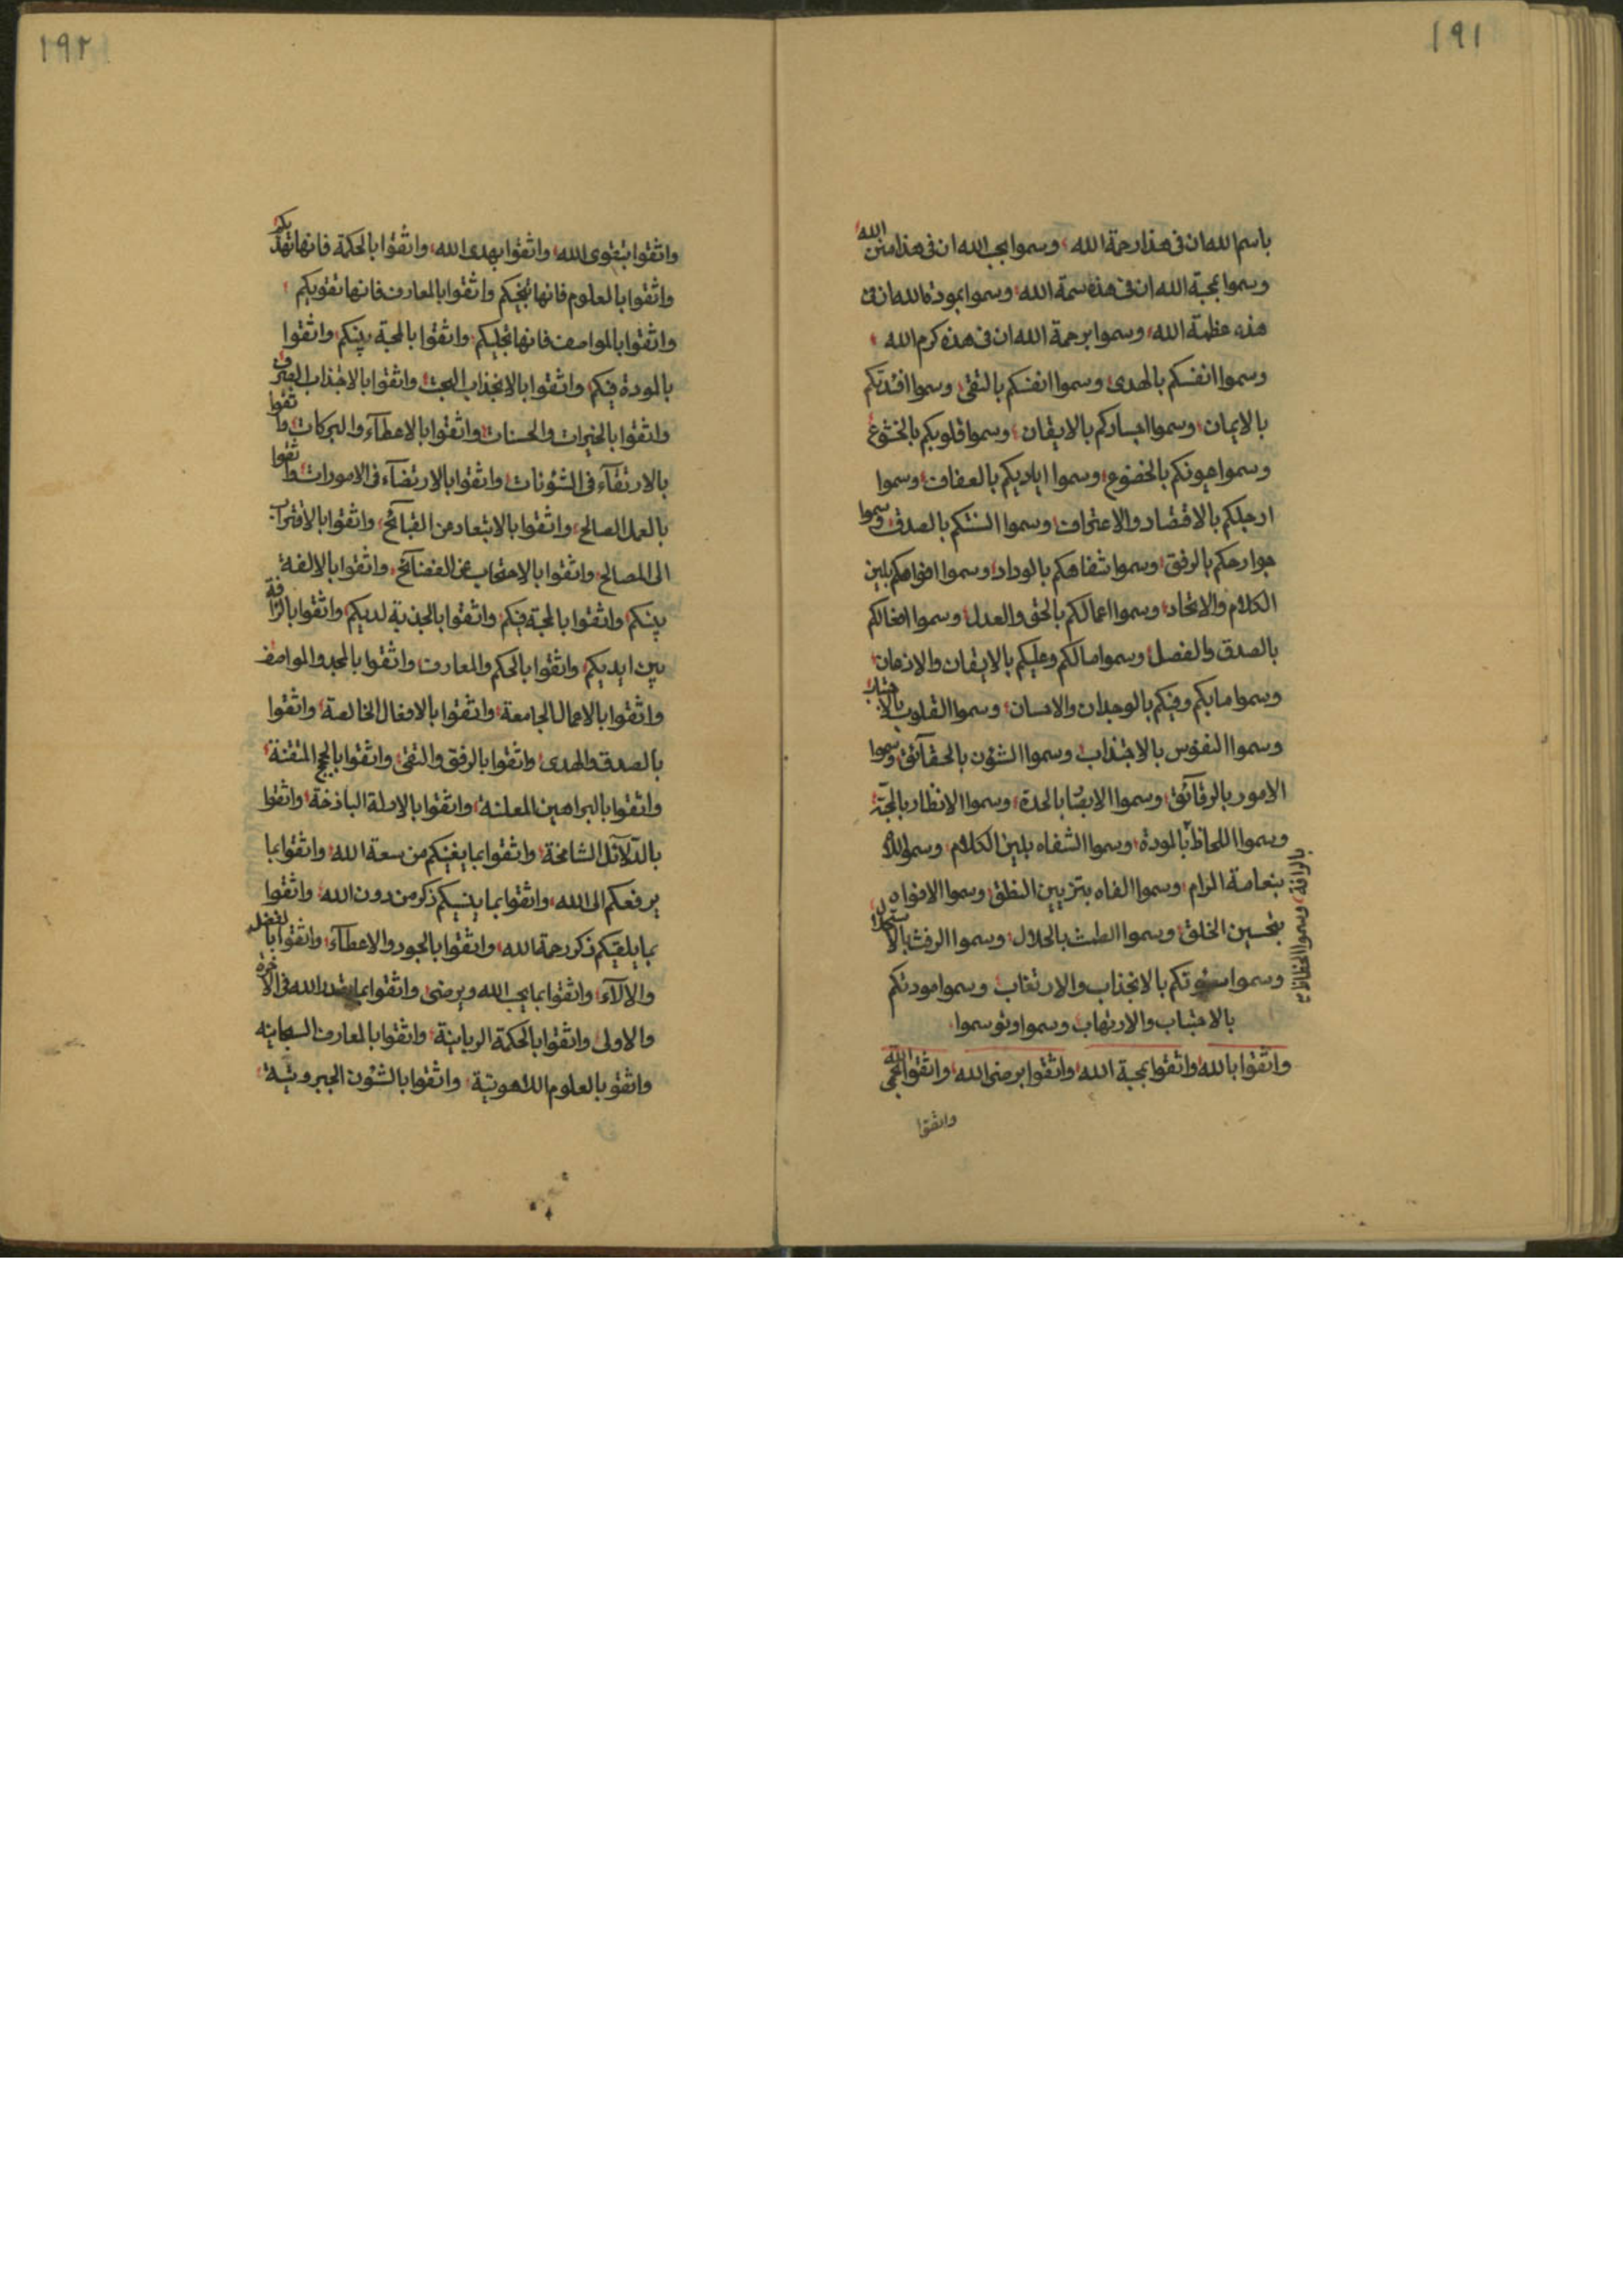 ١٩١
باسم الله ان فی هذا رحمة الله، وسموا بحب الله ان فی هذا منن الله،
وسموا بمحبة الله ان فی هذه سمة الله، وسموا بمودة الله ان فی
هذه عظمة الله، وسموا برحمة الله ان فی هذه كرم الله،
وسموا انفسكم بالهدی، وسموا انفسكم بالتقی، وسموا افئدتكم
بالایمان، وسموا ابصاركم بالایقان، وسموا قلوبكم بالخشوع
وسموا عیونكم بالخضوع، وسموا ایادیكم بالعفاف، وسموا
ارجلكم بالاقتصاد والاعتراف، وسموا السنتكم بالصدق، وسموا
جوارحكم بالرفق، وسموا شفاهكم بالوداد، وسموا افواهكم بلین
الكلام والاتحاد، وسموا اعمالكم بالحق والعدل، وسموا افعالكم
بالصدق والفصل، وسموا مالكم وعلیكم بالایقان والاذعان،
وسموا ما بكم وفیكم بالوجدان والاحسان، وسموا القلوب
وسموا النفوس بالاجتذاب، وسموا الشؤن بالحقآئق، وسموا
الامور بالرقآئق، وسموا الابصار بالحدة، وسموا الانظار بالمحبة،
وسموا اللحاظ بالمودة، وسموا الشفاه بلین الكلام، وسموا
المرام، وسموا الفاه بتزیین النطق، وسموا الافواه
بتحسین الخلق، وسموا الطمث بالحلال، وسموا الرفث
وسموا بالانجذاب والارتغاب، وسموا مودتكم
بالاجتباب والارتهاب، وسموا وتوسموا،
واتقوا بالله، واتقوا بمحبة الله، واتقوا برضی الله، واتقوا الله
واتقوا
بالرافة، وسموا
١٩٢
واتقوا بتقوی الله، واتقوا بهدی الله، واتقوا بالحكمة فانها تهذبكم،
واتقوا بالعلوم فانها تنجیكم، واتقوا بالمعارف فانها تقویكم،
واتقوا بالمواصف فانها تجلیكم، واتقوا بالمحبة بینكم، واتقوا
بالمودة فیكم، واتقوا بالانجذاب البحت، واتقوا بالاجذاب الصرف
واتقوا بالخیرات والحسنات، واتقوا بالاعطآء والبركات، واتقوا
بالارتقآء فی الشئونات، واتقوا بالارتضآء فی الامورات، واتقوا
بالعمل الصالح، واتقوا بالابتعاد من القبآئح، واتقوا بالاقتراب
الی المصالح، واتقوا بالاجتناب عن الفضآئح، واتقوا بالالفة
بینكم، واتقوا بالمحبة فیكم، واتقوا بالجذبة لدیكم، واتقوا بالرافة
بین ایدیكم، واتقوا بالحكم والمعارف، واتقوا بالمجد والمواصف
واتقوا بالاعمال الجامعة، واتقوا بالافعال الخالصة، واتقوا
بالصدق والهدی، واتقوا بالرفق والتقی، واتقوا بالحجج المتقنة،
واتقوا بالبراهین المعلنة، واتقوا بالادلة الباذخة، واتقوا
بالدلآئل الشامخة، واتقوا بما یغنیكم من سعة الله، واتقوا بما
یرفعكم الی الله، واتقوا بما ینسیكم ذكر من دون الله، واتقوا
بما یلقیكم ذكر رحمة الله، واتقوا بالجود والاعطآء، واتقوا بالفضل
والالآء، واتقوا بما یحب الله ویرضی، واتقوا بما الله فی الاخرة
والاولی، واتقوا بالحكمة الربانیة، واتقوا بالمعارف السبحانیه
واتقو بالعلوم اللاهوتیة، واتقوا بالشئون الجبروتیة،